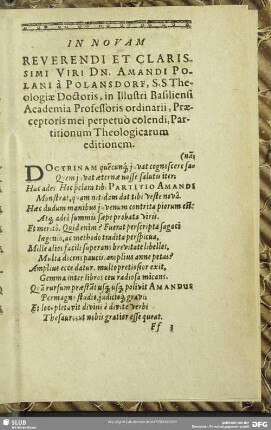 IN NOVAM
REVERENDI ET CLARIS-
SIMI VIRI DN. AMANDI PO-
LANI à POLANSDORF, S.S Theo-
logiæ Doctoris, in Illustri Basiliensi
Academia Professoris ordinarii, Præ-
ceptoris mei perpetuò colendi, Par-
titionum Theologicarum
editionem.
DOCTRINAM quẽcunq; juvat cognoscere sa-
Quem juvat æternæ nosse salutis iter:
Huc ades: Hæc polam tibi PARTITIO AMANDI
Monstrat, quam
Hæc dudum manibus juvenum contrita piorum est:
Atq; adeò summis sæpe probata viris.
Et meritò. Quid enim? Fuerat perscripta sagaci
Ingenio, ac methodo tradita perspicua,
Melle alios facili superans brevitate libellos,
Multa docens paucis. amplius anne petas?
Amplius ecce datur. multo pretiosior exit,
Gemma inter libros ceu radiosa micans.
Quã rursum præstãti usq; usq; polivit AMANDUS
Permagno studio, judicioq́; gravi:
Et locupletavit divini è divite verbi
Thesauro, ut nobis gratior esse queat.
Ff 3
SLUB
DFG